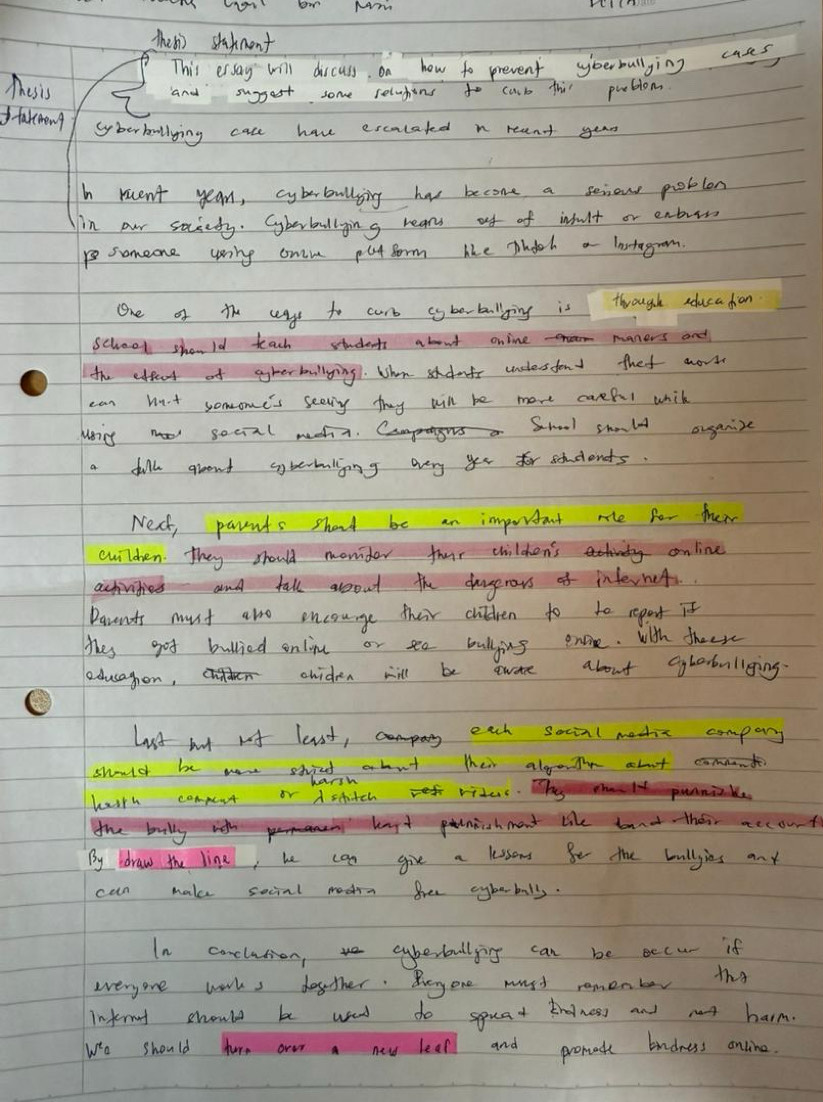 thesis statment
This essay will discuss on how to prevent cyberbullying cases
and suggest some solutions to curb this problem.
Thesis
statement
cyberbullying case have escalated in recent years
In recent years, cyberbullying has become a serious problem
in our society. Cyberbullying means of insult or
someone using online platform like or Instagram.
One of the ways to curb cyberbullying is through education.
School should teach students about online maners and
the effect of cyberbullying. When students understand that
can hurt someone's they will be more careful while
using social media. School should organize
a talk about cyberbullying every year for students.
Next, parents shoul be an important role for their
children. They should monitor their children's online
activities and talk about the dangerous of internet.
Parents must also encourage their children to to report if
they got bullied online or see bullying online. With
education, children will be aware about cyberbullying.
Last but not least, each social media company
should be more strict about their algorithm about comment
harsh
comment or videos. They should
the bully with punishment like their account
By draw the line, he can give a lessons for the bullies and
can make social media free cyberbully.
In conclusion, cyberbullying can be occur if
everyone works together. Everyone must remember the
internet should be used to spread kindness and not harm.
We should turn over a new leaf and promote kindness online.